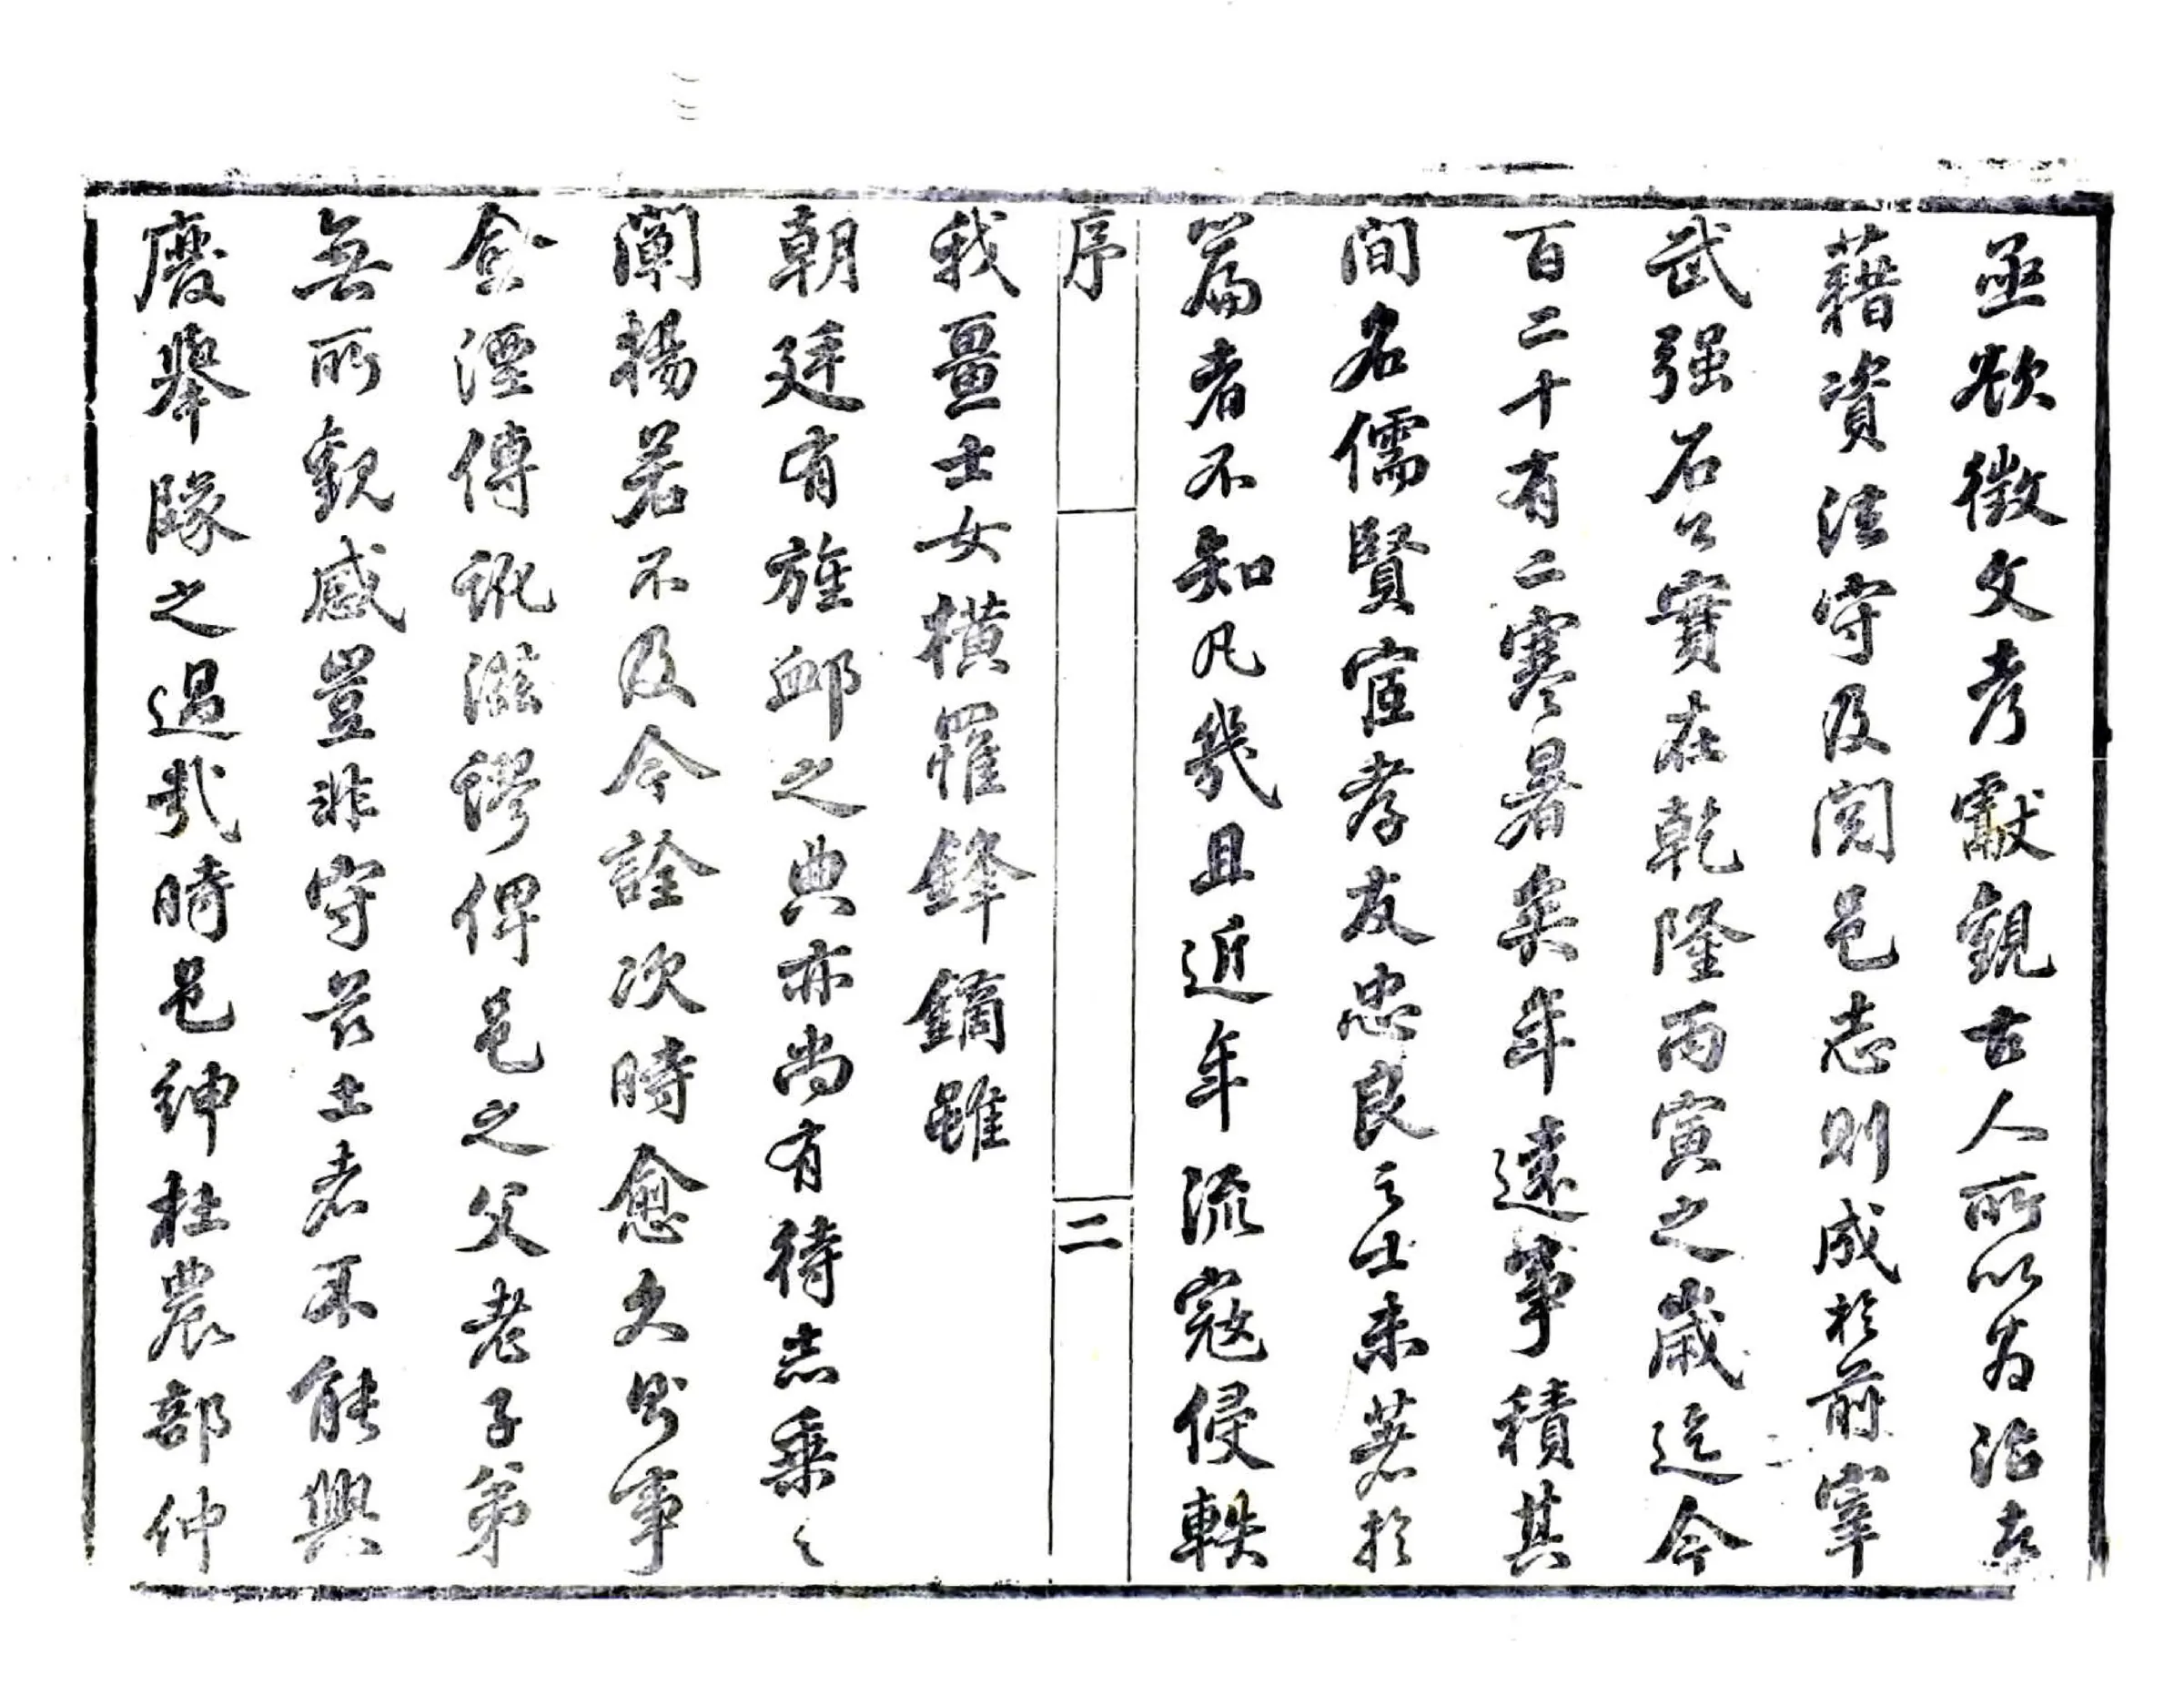 亟欲徵文考獻觀古人所以為治者
藉資法守及閱邑志則成於前宰
武强石公實在乾隆丙寅之歲迄今
百二十有二寒暑矣年遠事積其
間名儒賢宦孝友忠良之士未著於
篇者不知凡幾且近年流寇侵軼
序
二
我畺士女橫罹鋒鏑雖
朝廷有旌卹之典亦尚有待志乘之
闡揚若不及今詮次時愈久則事
愈湮傳訛滋謬俾邑之父老子弟
無所觀感豈非守茲土者不能興
廢舉隊之過哉時邑紳杜農部仲